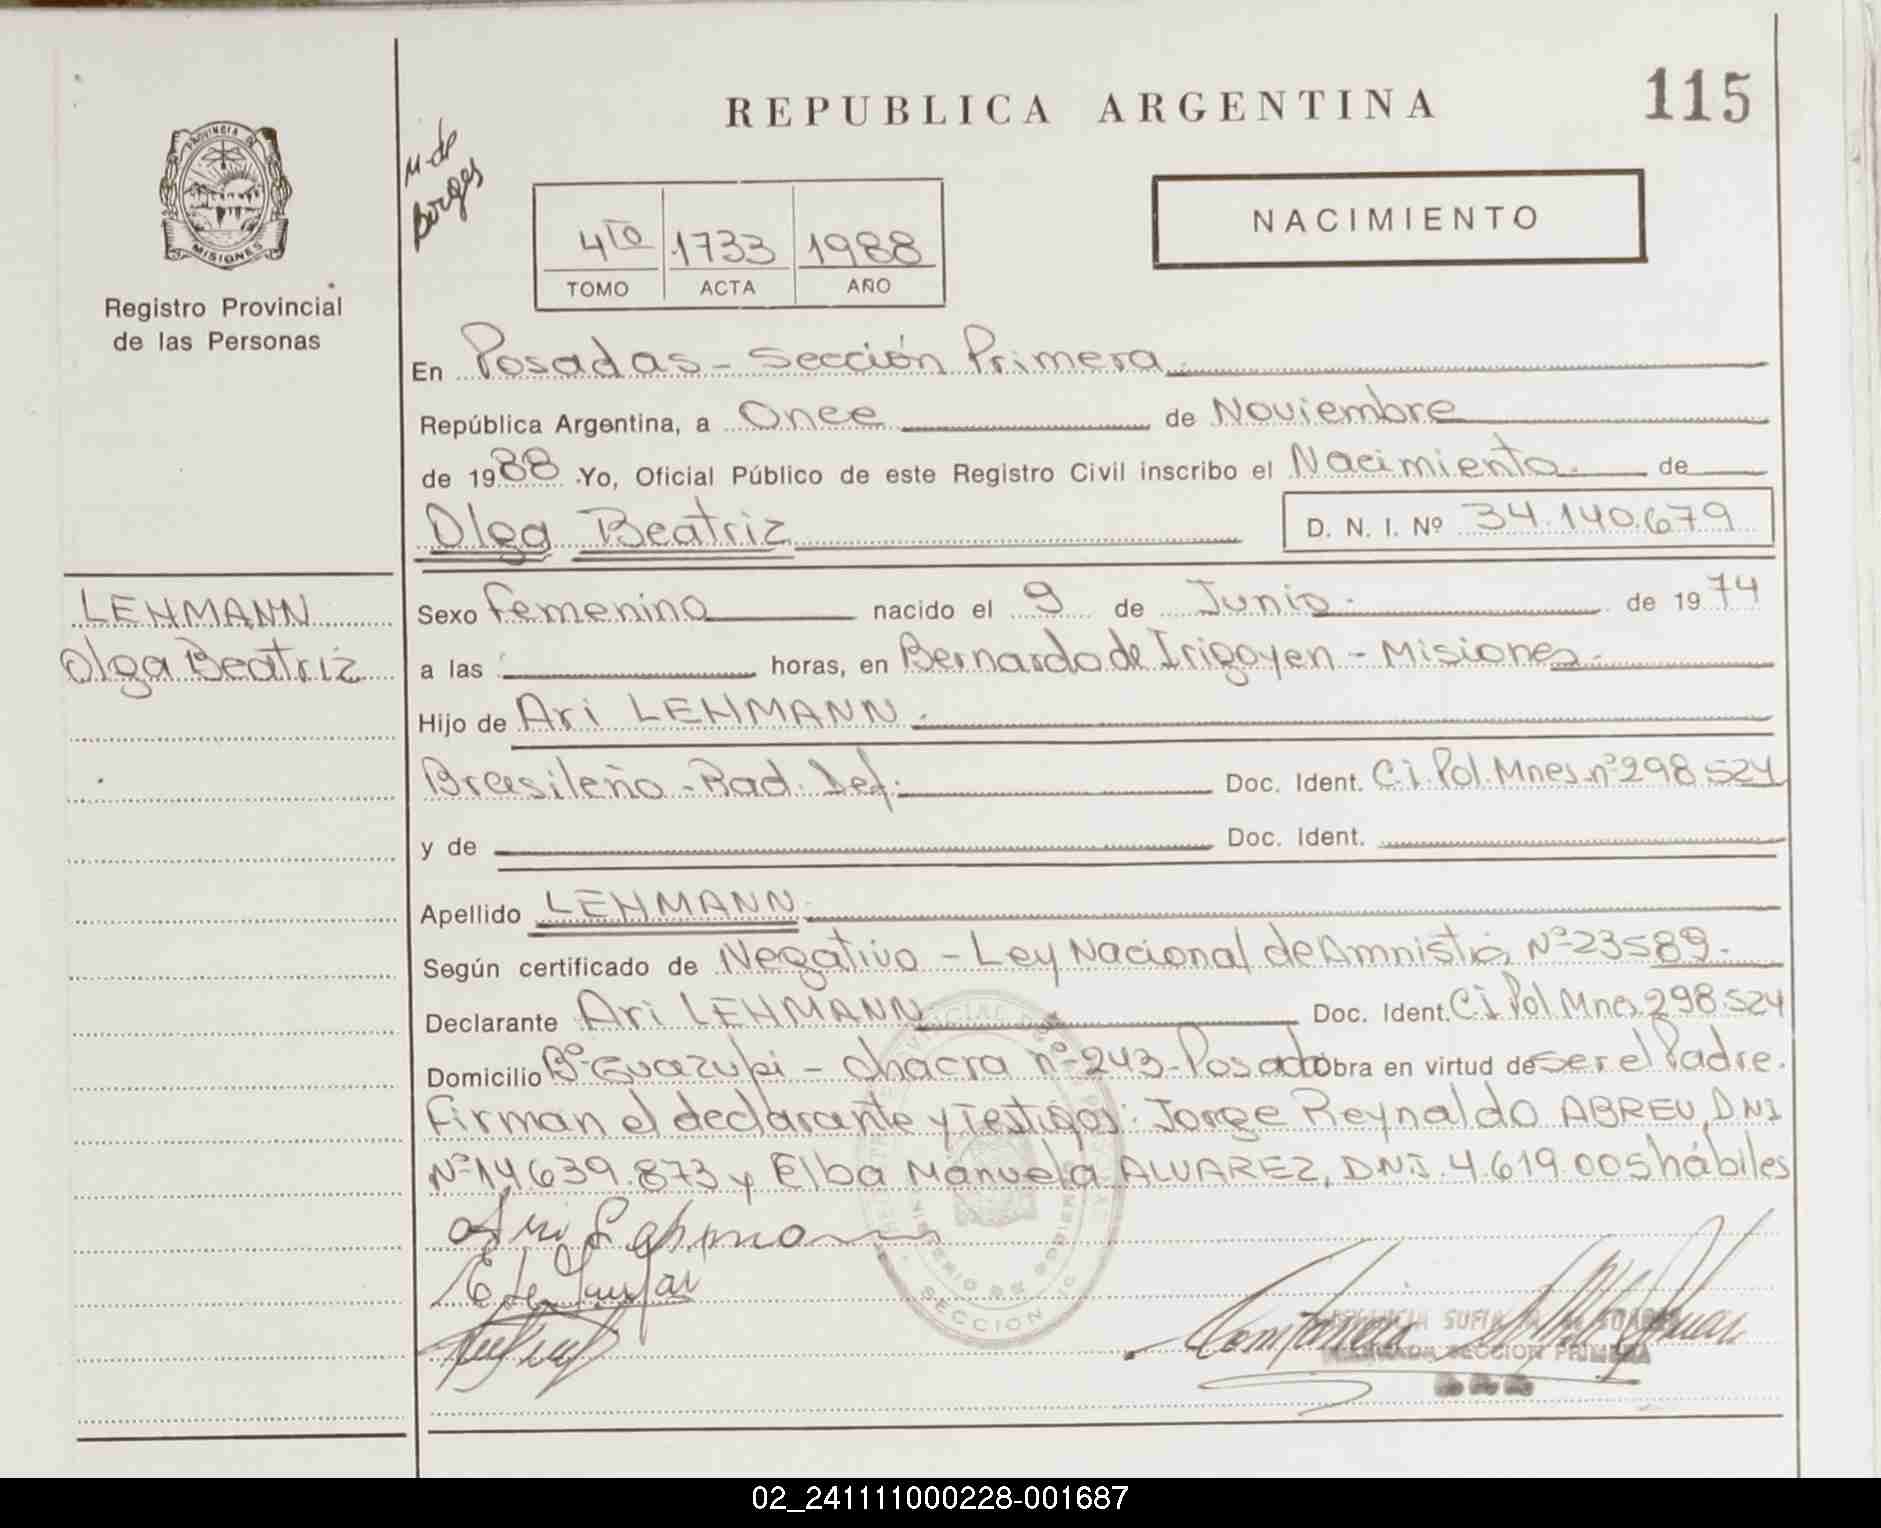 REPUBLICA ARGENTINA
115
PROVINCIA DE
MISIONES
Registro Provincial
de las Personas
M. de
Borges
NACIMIENTO
4to 1733 1988
TOMO ACTA AÑO
En Posadas - Sección Primera.
República Argentina, a Once de Noviembre
de 1988 Yo, Oficial Público de este Registro Civil inscribo el Nacimiento. de
Olga Beatriz
D. N. I. Nº 34.140.679
LEHMANN
Olga Beatriz
Sexo femenino nacido el 9 de Junio. de 1974
a las horas, en Bernardo de Irigoyen - Misiones.
Hijo de Ari LEHMANN.
Brasileño - Rad. Def. Doc. Ident. C.i. Pol. Mnes. nº 298.524
y de Doc. Ident.
Apellido LEHMANN.
Según certificado de Negativo - Ley Nacional de Amnistia Nº 23589.
Declarante Ari LEHMANN Doc. Ident. C.i Pol Mnes 298.524
Domicilio Bº Guazupi - chacra nº 243 - Posadas Obra en virtud de ser el Padre.
firman el declarante y Testigos: Jorge Reynaldo ABREU, DNI
Nº 14639.873 y Elba Manuela ALVAREZ, DNI. 4.619.005 hábiles
Ari Lehmann
SECCION 1º
MINISTERIO DE GOBIERNO
SECCION PRIMERA
02_241111000228-001687